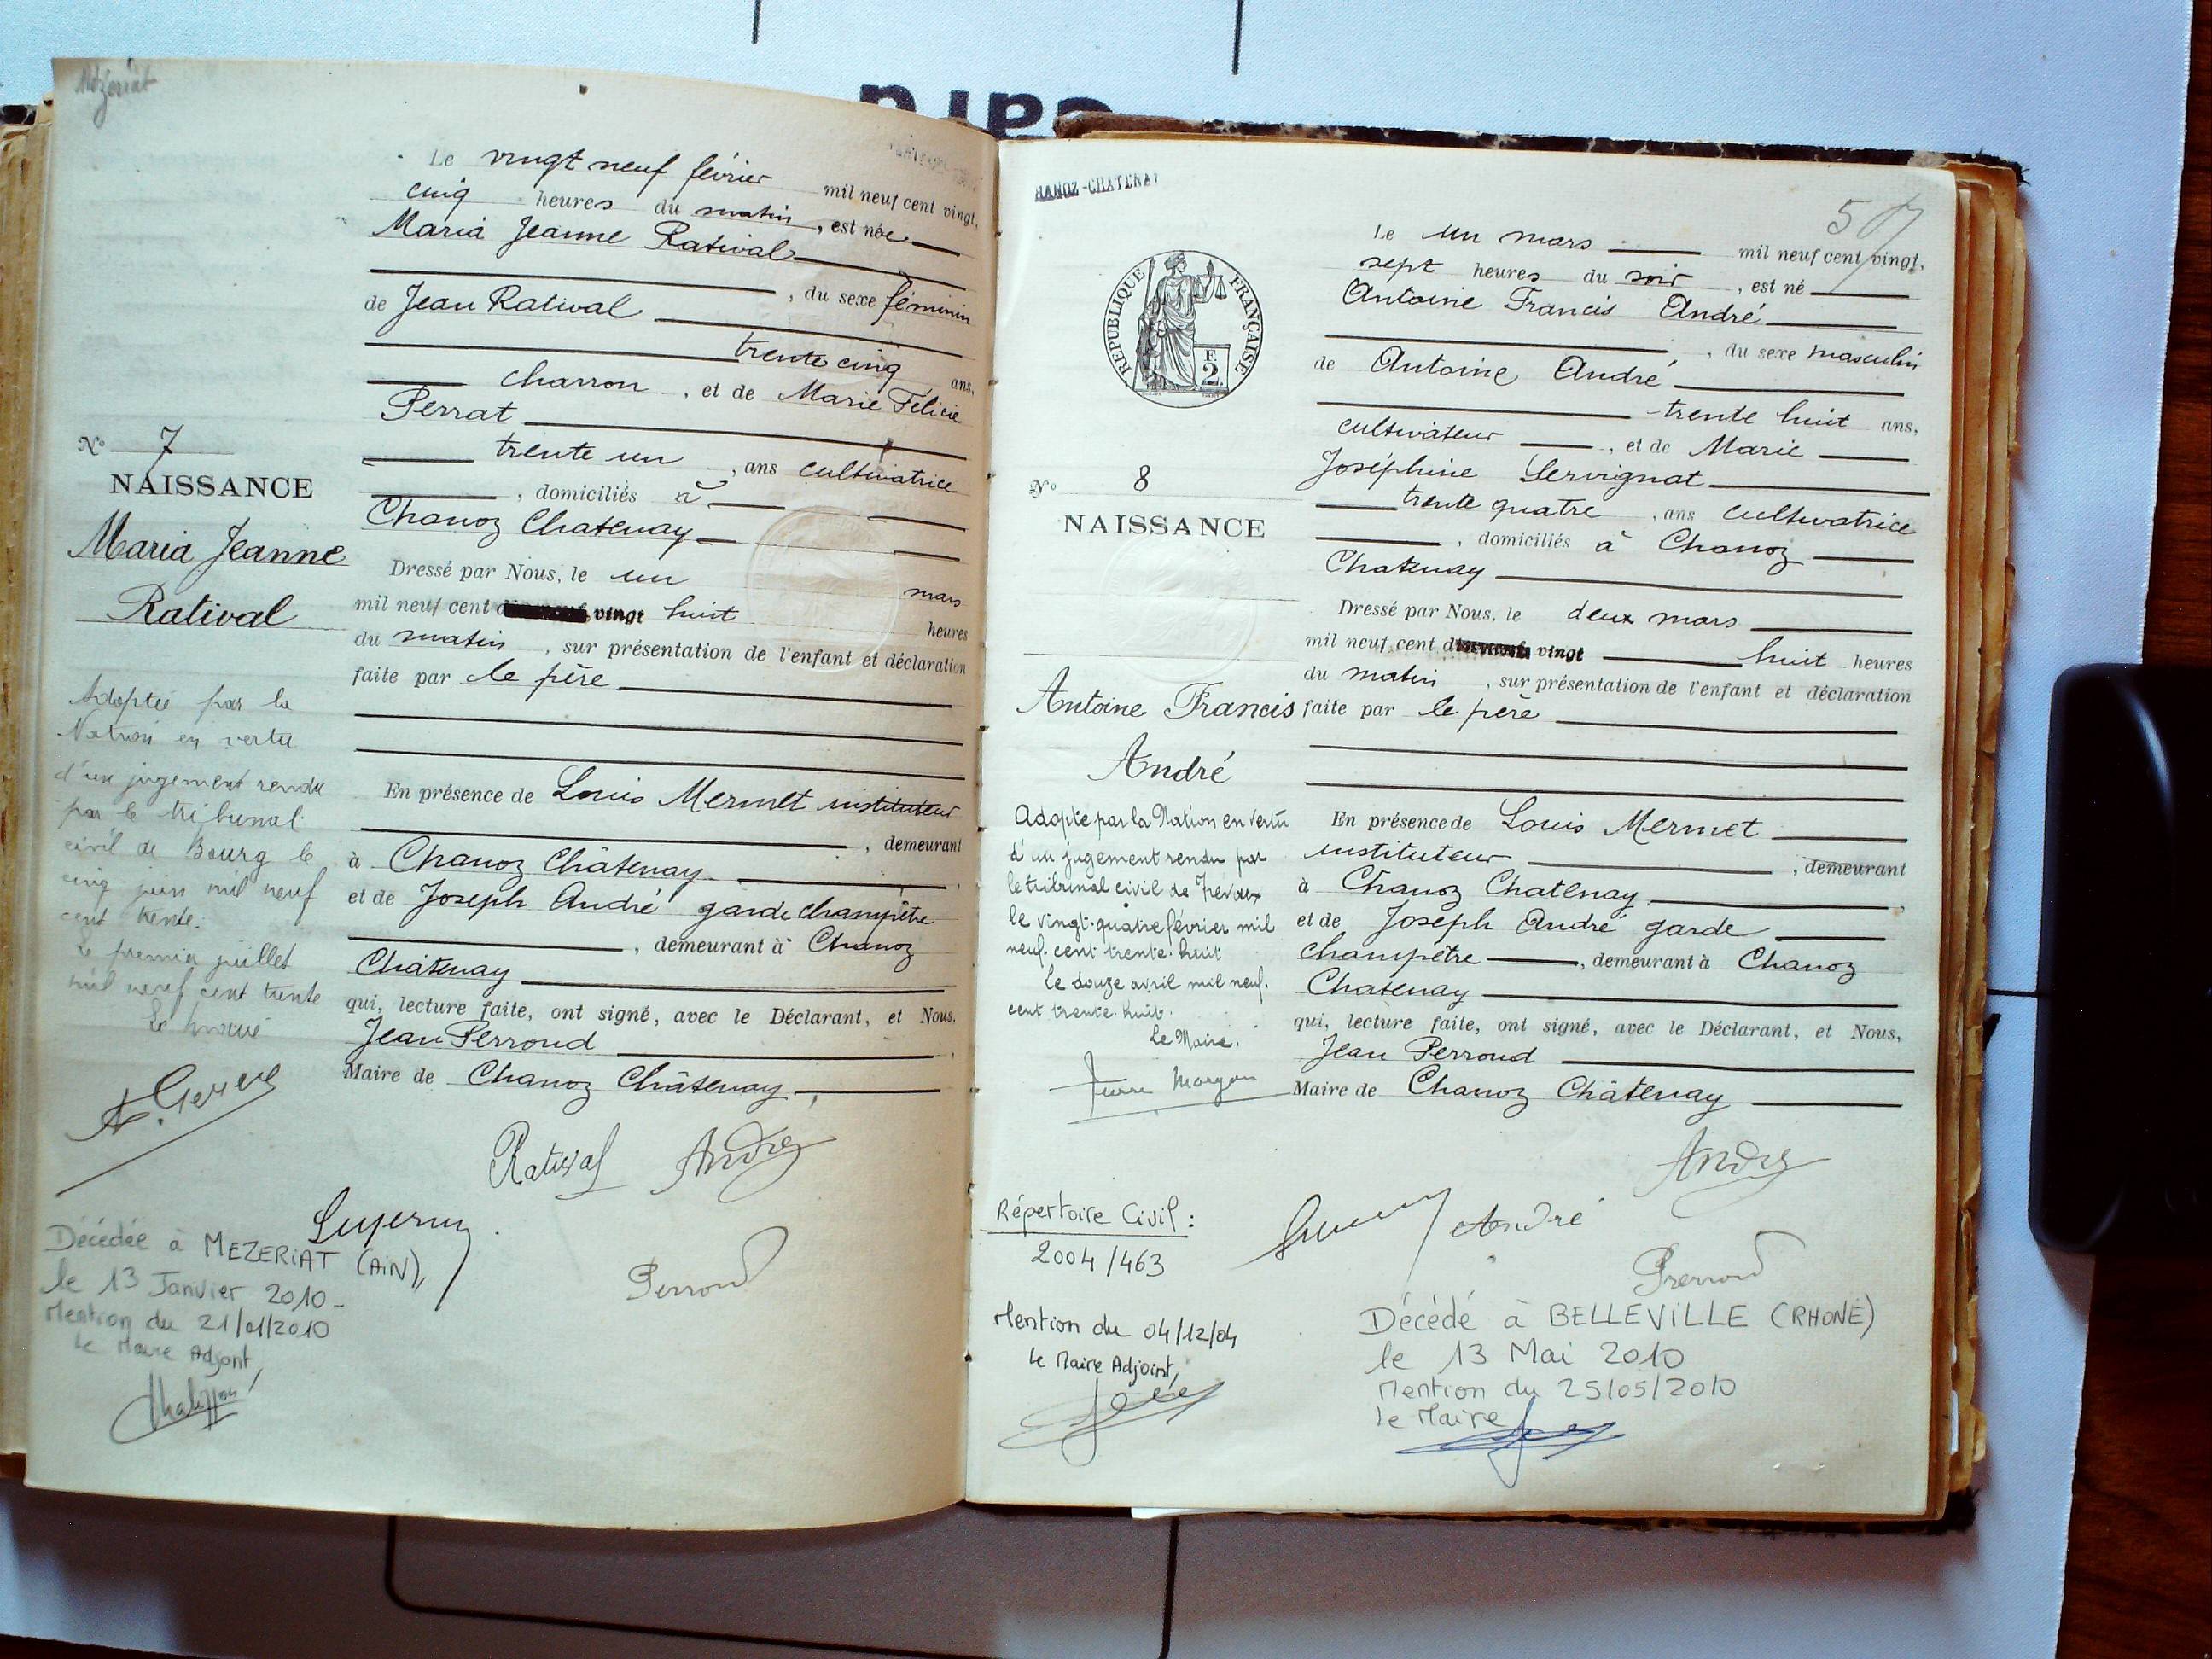 Mézériat
Le vingt neuf février mil neuf cent vingt,
cinq heures du matin, est née
Maria Jeanne Ratival
, du sexe féminin
de Jean Ratival
trente cinq ans,
charron, et de Marie Félicie
Perrat
trente un, ans cultivatrice
, domiciliés à
Chanoz Chatenay
Dressé par Nous, le un mars
mil neuf cent vingt huit heures
du matin, sur présentation de l'enfant et déclaration
faite par le père
En présence de Louis Mermet instituteur
, demeurant
à Chanoz Châtenay
et de Joseph André garde champêtre
, demeurant à Chanoz
Châtenay
qui, lecture faite, ont signé, avec le Déclarant, et Nous,
Jean Perroud
Maire de Chanoz Châtenay,
Ratival André
Perroud
N° 7
NAISSANCE
Maria Jeanne
Ratival
Adoptée par la
Nation en vertu
d'un jugement rendu
par le tribunal
civil de Bourg le
cinq juin mil neuf
cent trente.
Le premier juillet
mil neuf cent trente
Le maire
Décédée à MEZERIAT (AIN),
le 13 Janvier 2010-
Mention du 21/01/2010
Le Maire Adjoint,
HANOZ-CHATENAY
57
REPUBLIQUE FRANÇAISE
E
2.
Le un mars mil neuf cent vingt,
sept heures du soir, est né
Antoine Francis André
, du sexe masculin
de Antoine André
trente huit ans,
cultivateur, et de Marie
Joséphine Servignat
trente quatre, ans cultivatrice
, domiciliés à Chanoz
Chatenay
Dressé par Nous, le deux mars
mil neuf cent vingt huit heures
du matin, sur présentation de l'enfant et déclaration
faite par le père
En présence de Louis Mermet
instituteur, demeurant
à Chanoz Chatenay
et de Joseph André garde
champêtre, demeurant à Chanoz
Chatenay
qui, lecture faite, ont signé, avec le Déclarant, et Nous,
Jean Perroud
Maire de Chanoz Châtenay
André
André
Perroud
N° 8
NAISSANCE
Antoine Francis
André
Adopté par la Nation en vertu
d'un jugement rendu par
le tribunal civil de Trévoux
le vingt-quatre février mil
neuf-cent trente-huit
Le douze avril mil neuf-
cent trente-huit.
Le Maire.
Pierre Morgon
Répertoire Civil :
2004/463
Mention du 04/12/04
Le Maire Adjoint,
Décédé à BELLEVILLE (RHONE)
le 13 Mai 2010
Mention du 25/05/2010
Le Maire